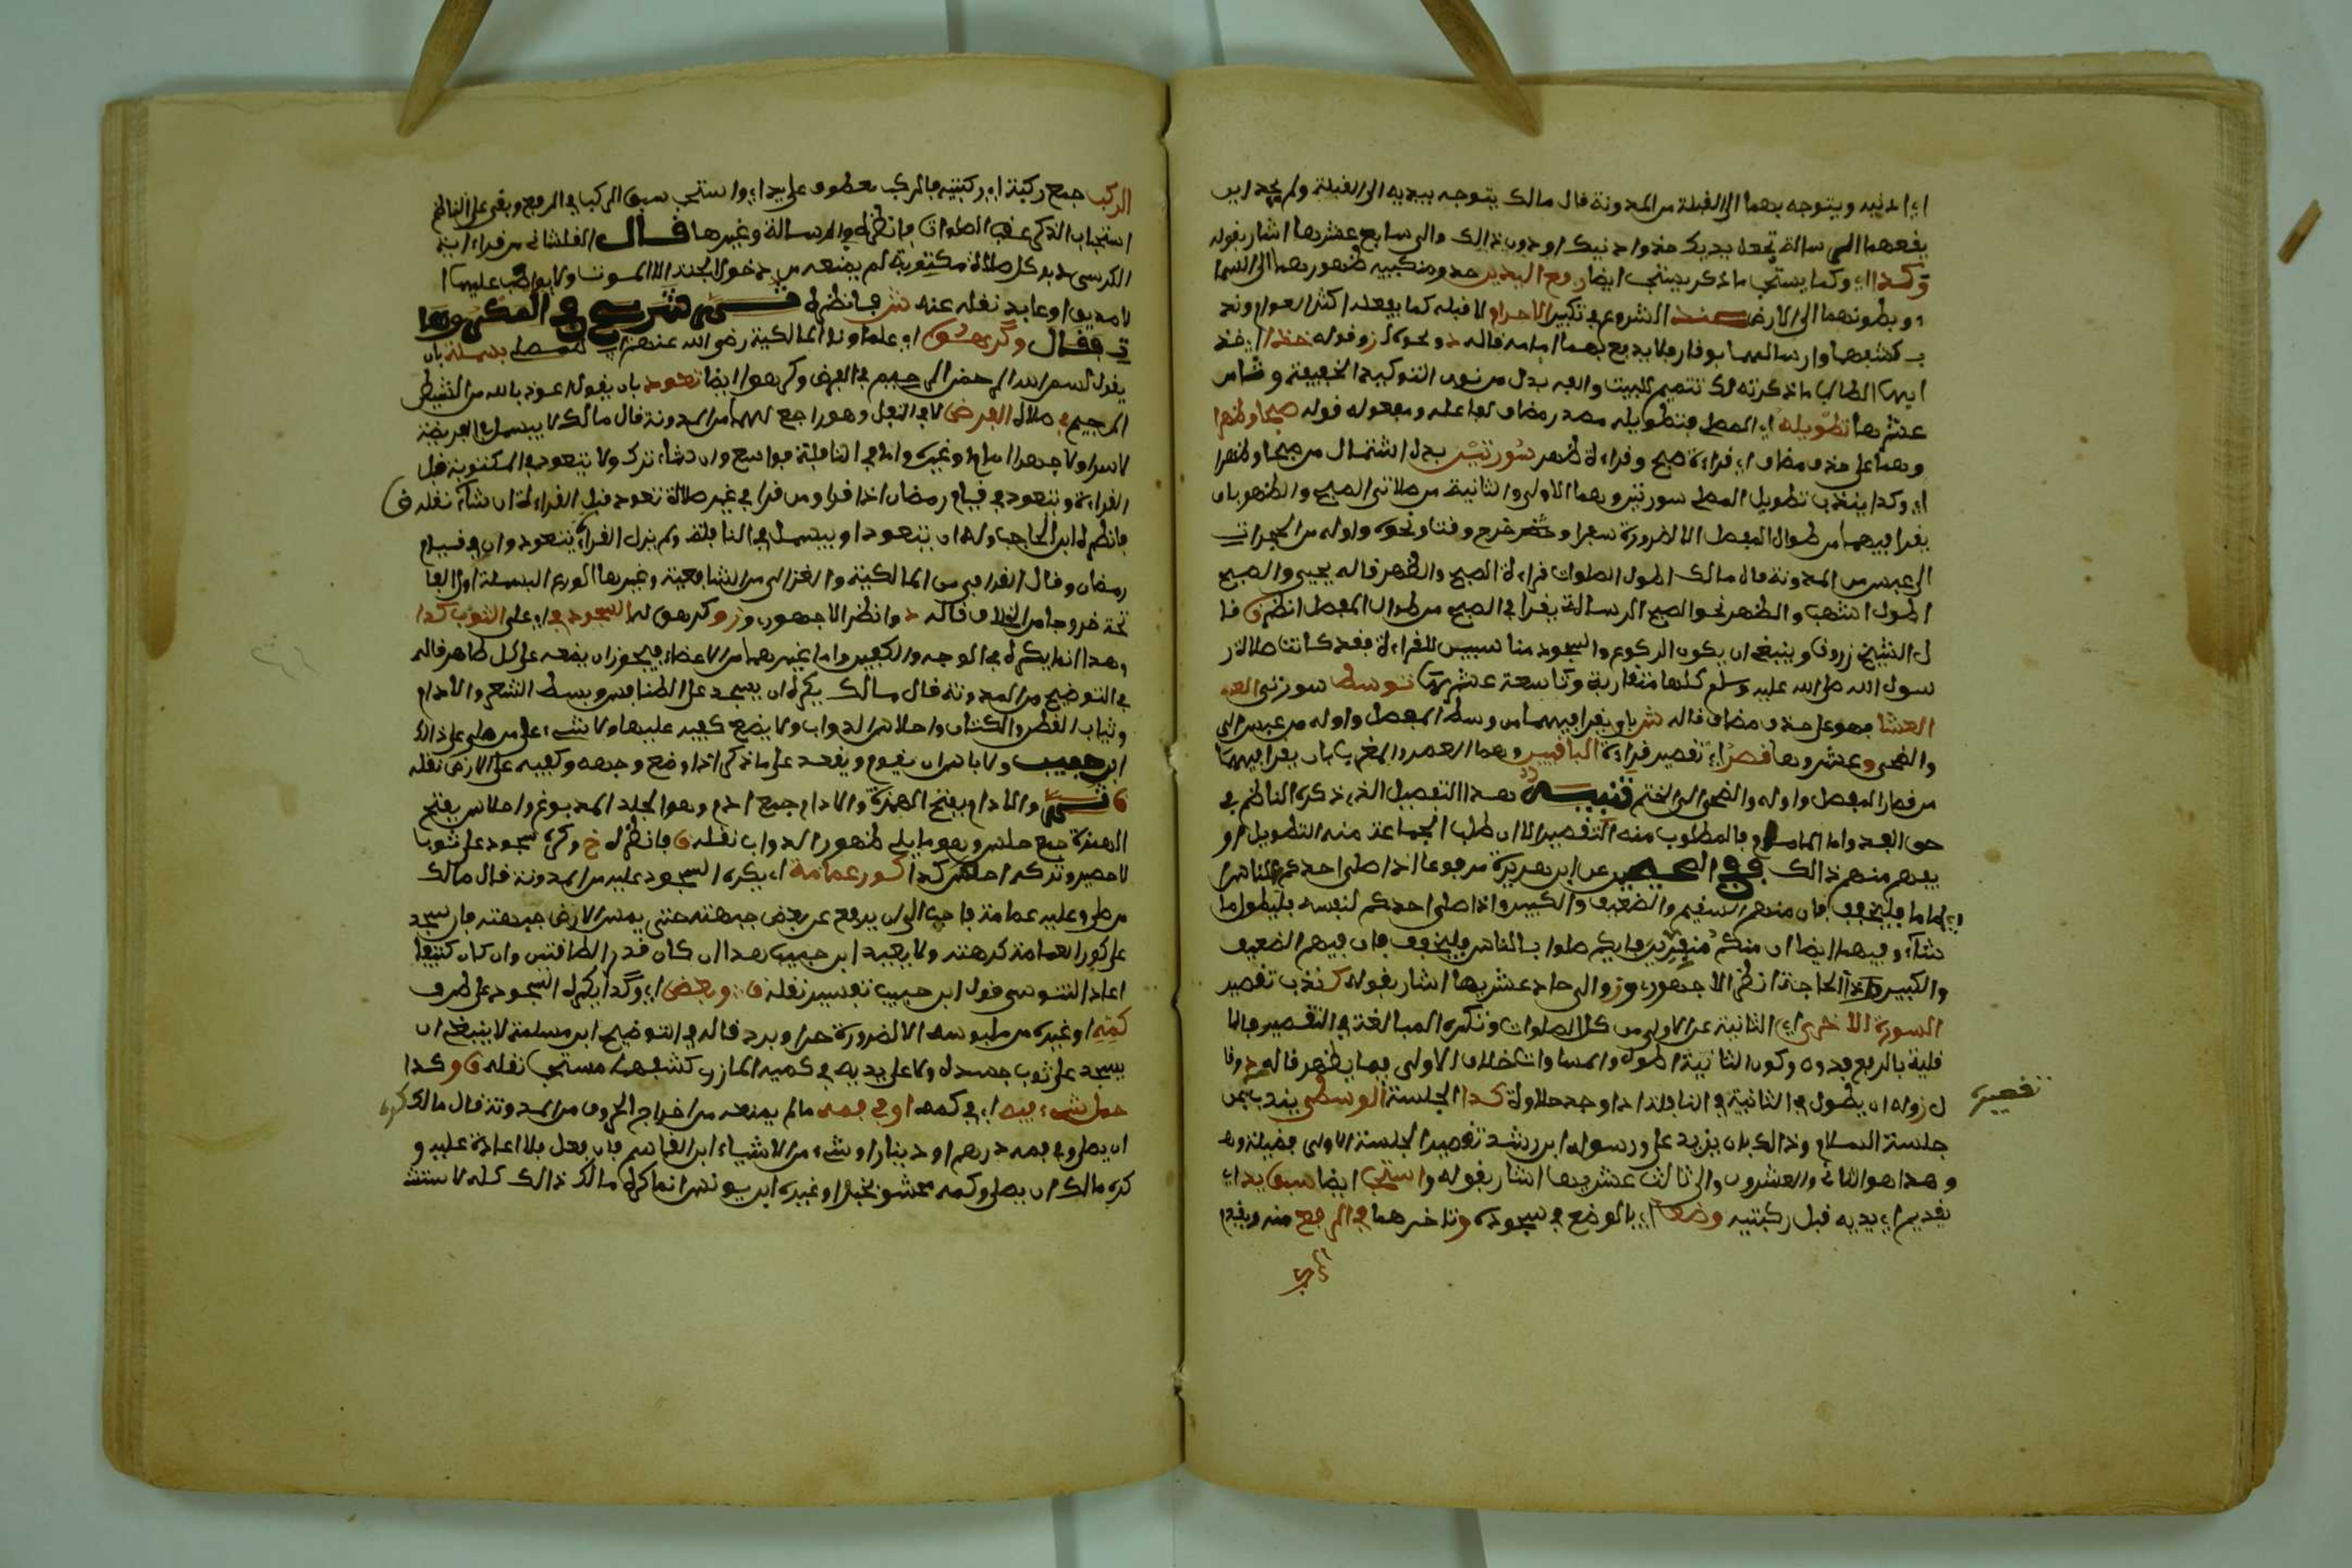 اي اذنيه ويتوجه بهما الى القبلة من المدونة قال مالك يتوجه بيديه الى القبلة ولم يجد اين
يضعهما الرسالة تجعل يديك حذو اذنيك او دون ذالك والى سابع عشرها اشار بقوله
وكذا اي وكما يستحب ما ذكر يستحب ايضا رفع اليدين حذو منكبيه ظهورهما الى السما
وبطونهما الى الارض عند الشروع في تكبير الاحرام لا قبله كما يفعله اكثر العوام وند
ب كشفهما وارسالهما بوقار فلا يدفع بهما امامه قاله د ونحوه ز وقوله خذا اي خذ
ايها الطالب ما ذكرته لك تتميم للبيت والفه بدل من نون التوكيد الخفيفة وثامن
عشرها تطويله اي المصلي فتطويله مصدر مضاف لفاعله ومفعوله قوله صبحا وظهرا
وهما على حذف مضاف اي قراءة صبح وقراءة ظهر سورتين بدل اشتمال من صبحا وظهرا
اي وكذا يندب تطويل المصلي سورتين وهما الاولى والثانية من صلاتي الصبح والظهر بان
يقرا فيهما من طوال المفصل الا لضرورة سفر او خروج وقت ونحوه واوله من الحجرات
الى عبس من المدونة قال مالك اطول الصلوات قراءة الصبح والظهر قاله يحيى والصبح
اطول اشهب والظهر نحو الصبح الرسالة يقرا في الصبح من طوال المفصل انظر ق قا
ل الشيخ زروق وينبغي ان يكون الركوع والسجود مناسبين للقراءة فقد كانت صلاة ر
سول الله صلى الله عليه وسلم كلها متقاربة وتاسعة عشرتها توسط سورتي العـ
العشا فهو على حذف مضاف قاله ش بان يقرا فيهما من وسط المفصل واوله من عبس الى
والضحى وعشروها قصرا اي تقصير قراءة الباقيين وهما العصر والمغرب بان يقرا فيهما
من قصار المفصل واوله والضحى الى الختم تنبيه هذا التفصيل الذي ذكره الناظم في
حق الفذ واما الامام فالمطلوب منه التقصير الا ان طلب الجماعة منه التطويل او
يفهم منهم ذالك ففي الصحيح عن ابي هريرة مرفوعا اذا صلى احدكم للناس
اماما فليخفف فان منهم السقيم والضعيف والكبير واذا صلى احدكم لنفسه فليطول ما
شاء وفيهما ايضا ان منكم منفرين فايكم صلوا بالناس فليخفف فان فيهم الضعيف
والكبير وذا الحاجة انظر الاجهوري وز والى حاد عشريها اشار بقوله كندب تقصير
السورة الاخرى اي الثانية عن الاولى من كل الصلوات وتكره المبالغة في التقصير فالا
قلية بالربع فدون وكون الثانية اطول والمساوات خلاف الاولى فيما يظهر قاله د وقا
ل ز وله ان يطول في الثانية في النافلة اذا وجد حلاوة كذا الجلسة الوسطى يندب من
تقصير
جلسة السلام وذالك بان يزيد على ورسوله ابن رشد تقصير الجلسة الاولى فضيلة
وهذا هو الثاني والعشرون والى ثالث عشريها اشار بقوله واستحب ايضا سبق يد اي
تقديم اي يديه قبل ركبتيه وضعا اي بالوضع في سجوده وتاخرهما في الرفع منه وبقيام
الركب جمع ركبة اي ركبتيه فالركب معطوف على يد اي واستحب سبق الركب في الرفع وبقي على الناظم
استحباب الذكر عقب الصلوات فانظره في الرسالة وغيرها قال القلشاني من قرا اية
الكرسي دبر كل صلاة مكتوبة لم يمنعه من دخول الجنة الا الموت ولا يواظب عليها ا
لا صديق او عابد نقله عنه ش فانظره ثم شرع في المكروها
ت فقال وكرهوا اي علماونا المالكية رضي الله عنهم للمصلي بسملة بان
يقول بسم الله الرحمن الرحيم في الفرض وكرهوا ايضا تعوذ بان يقول اعوذ بالله من الشيطن
الرجيم في صلاة الفرض لا في النفل وهو راجع لهما من المدونة قال مالك لا يبسمل في الفريضة
لا سرا ولا جهرا امام او غيره واما في النافلة فواسع وان شاء ترك ولا يتعوذ في المكتوبة قبل
القراءة ويتعوذ في قيام رمضان اذا قرا ومن قرا في غير صلاة تعوذ قبل القراءة ان شاء نقله ق
فانظره ابن الحاجب وله ان يتعوذ او يبسمل في النافلة ولم يزل القراء يتعوذون في قيام
رمضان وقال القرافي من المالكية والغزالي من الشافعية وغيرهما الورع البسملة اول الفا
تحة خروجا من الخلاف قاله د وانظر الاجهوري وز وكرهوا السجود في اي على الثوب كذا
وهذا انما يكره في الوجه والكفين واما غيرهما من الاعضاء فيجوز ان يضعه على كل طاهر قاله
في التوضيح من المدونة قال مالك يكره ان يسجد على الطنافس وبسط الشعر والادام
وثياب القطن والكتان واحلاس الدواب ولا يضع كفيه عليها ولا شيء على من صلى على ذالك
ابن حبيب ولا باس ان يقوم ويقعد على ما ذكر اذا وضع وجهه وكفيه على الارض نقله
ق ثم والادام بفتح الهمزة والادام جمع ادم وهو الجلد المدبوغ واحلاس بفتح
الهمزة جمع حلس وهو ما يلي ظهور الدواب نقله ق فانظره خ وكره سجود على ثوب
لا حصير وتركه احسن كذا كور عمامة اي يكره السجود عليه من المدونة قال مالك
من صلى وعليه عمامة فاحب الي ان يرفع عن بعض جبهته حتى يمس الارض جبهته فان سجد
على كور العمامة كرهته ولا يعيد ابن حبيب هذا ان كان قدر الطاقتين وان كان كثيفا
اعاد التونسي قول ابن حبيب تفسير نقله ق وبعض اي وكذا يكره السجود على طرف
كمه او غيره من ملبوسه الا لضرورة حر او برد قاله في التوضيح ابن مسلمة لا ينبغي ان
يسجد على ثوب جسده ولا على يديه في كميه المازري كشفهما مستحب نقله ق وكذا
حمل شيء فيه اي في كمه او في فمه ما لم يمنعه من اخراج الحروف من المدونة قال مالك كره
ان يصلي وفي فمه درهم او دينار او شيء من الاشياء ابن القاسم فان فعل فلا اعادة عليه و
كره مالك ان يصلي وكمه محشو بخبز او غيره ابن يونس انما كره مالك ذالك كله لاشتغا